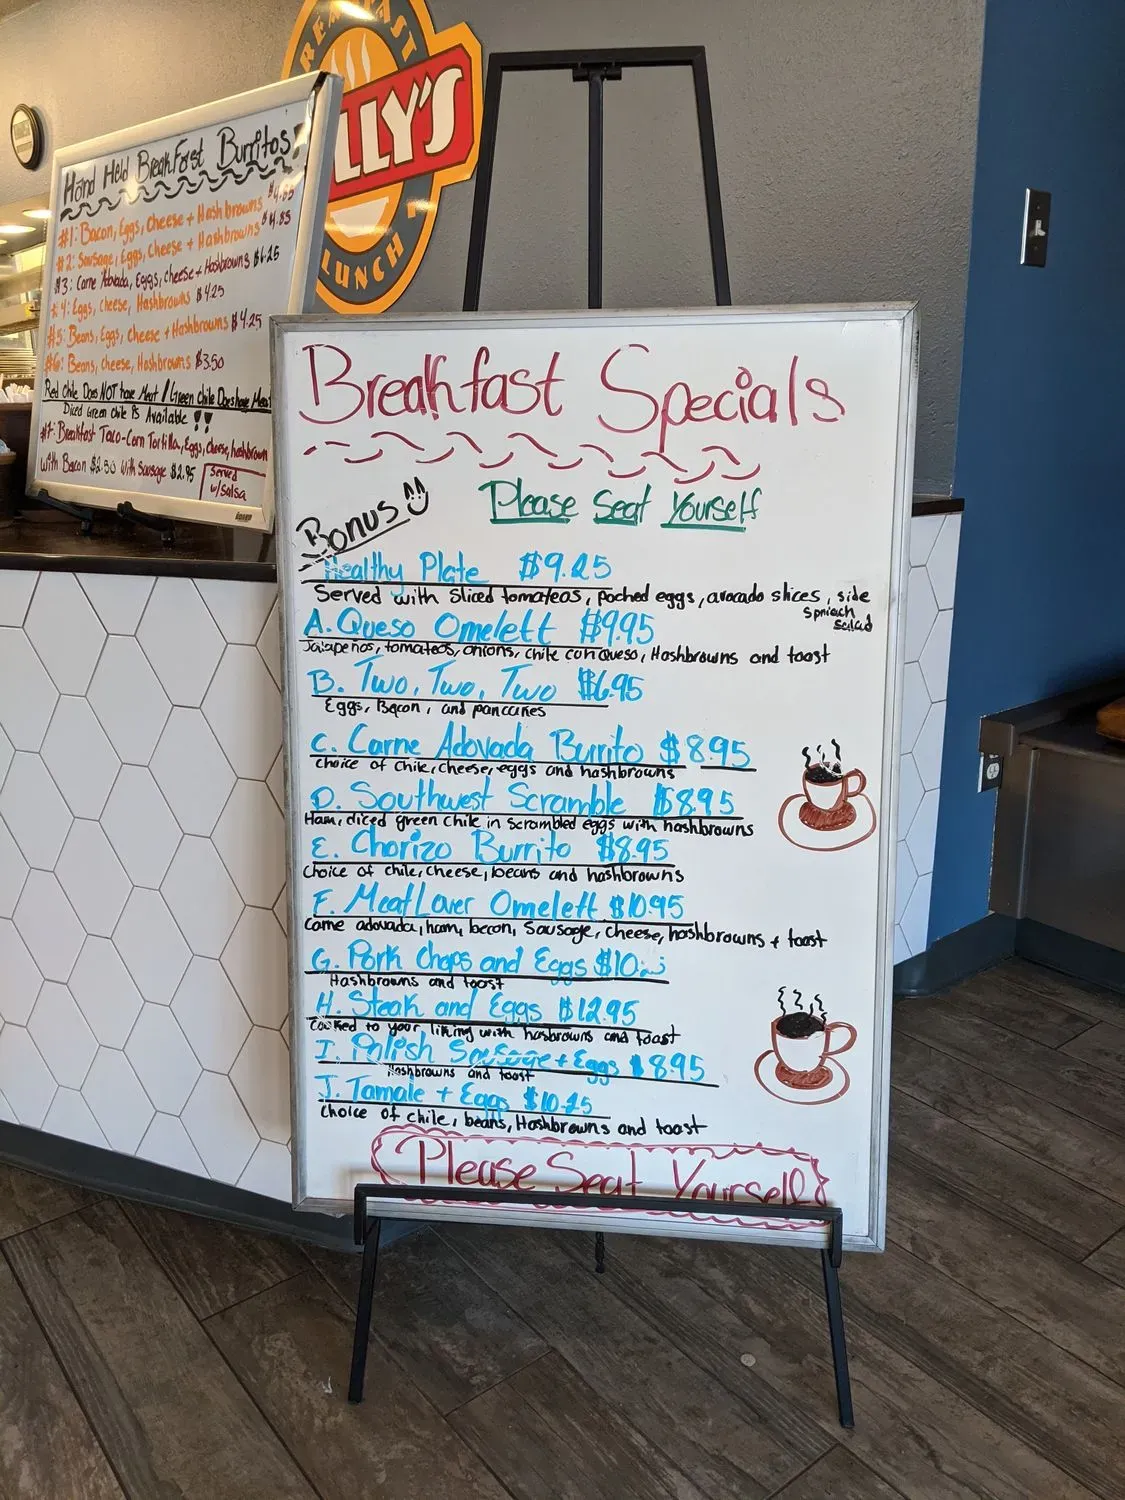 BREAKFAST
LLY'S
LUNCH
Hand Held Breakfast Burritos!
#1: Bacon, Eggs, Cheese + Hashbrowns $4.85
#2: Sausage, Eggs, Cheese + Hashbrowns $4.85
#3: Carne Adovada, Eggs, cheese + Hasbrowns $6.25
#4: Eggs, cheese, Hashbrowns $4.25
#5: Beans, Eggs, Cheese + Hashbrowns $4.25
#6: Beans, Cheese, Hashbrowns $3.50
Red Chile Does NOT have Meat / Green Chile Does have Meat
Diced Green Chile Is Available !!
#7: Breakfast Taco-Corn Tortilla, Eggs, cheese, hashbrown
with Bacon $2.50 with Sausage $2.95
Served
w/ Salsa
Breakfast Specials
Please Seat Yourself
Bonus
Healthy Plate $9.25
Served with sliced tomatoes, poched eggs, avocado slices, side
spniach
salad
A. Queso Omelett $9.95
Jalapeños, tomatoes, onions, chile con queso, Hashbrowns and toast
B. Two, Two, Two $6.95
Eggs, Bacon, and pancakes
C. Carne Adovada Burrito $8.95
choice of chile, cheese, eggs and hashbrowns
D. Southwest Scramble $8.95
Ham, diced green chile in scrambled eggs with hashbrowns
E. Chorizo Burrito $8.95
Choice of chile, cheese, beans and hashbrowns
F. Meat Lover Omelett $10.95
Carne adovada, ham, bacon, Sausage, cheese, hashbrowns + toast
G. Pork Chops and Eggs $10
Hashbrowns and toast
H. Steak and Eggs $12.95
Cooked to your liking with hasbrowns and toast
I. Polish Sausage + Eggs $8.95
Hashbrowns and toast
J. Tamale + Eggs $10.25
choice of chile, beans, Hashbrowns and toast
Please Seat Yourself